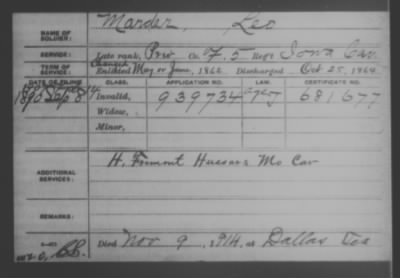 NAME OF SOLDIER: Mander, Leo
SERVICE: Late rank, Priv Co. F, 5 Reg't Iowa Cav.
TERM OF SERVICE: Enlisted May or June, 1862 Discharged Oct 25, 1864
DATE OF FILING. CLASS. APPLICATION NO. LAW. CERTIFICATE NO.
1890 Sept 8 Invalid, 939734 681677
Widow,
Minor,
ADDITIONAL SERVICES: H. Fremont Hussars Mo Cav
REMARKS:
Died Nov 9, 1914, at Dallas Tex